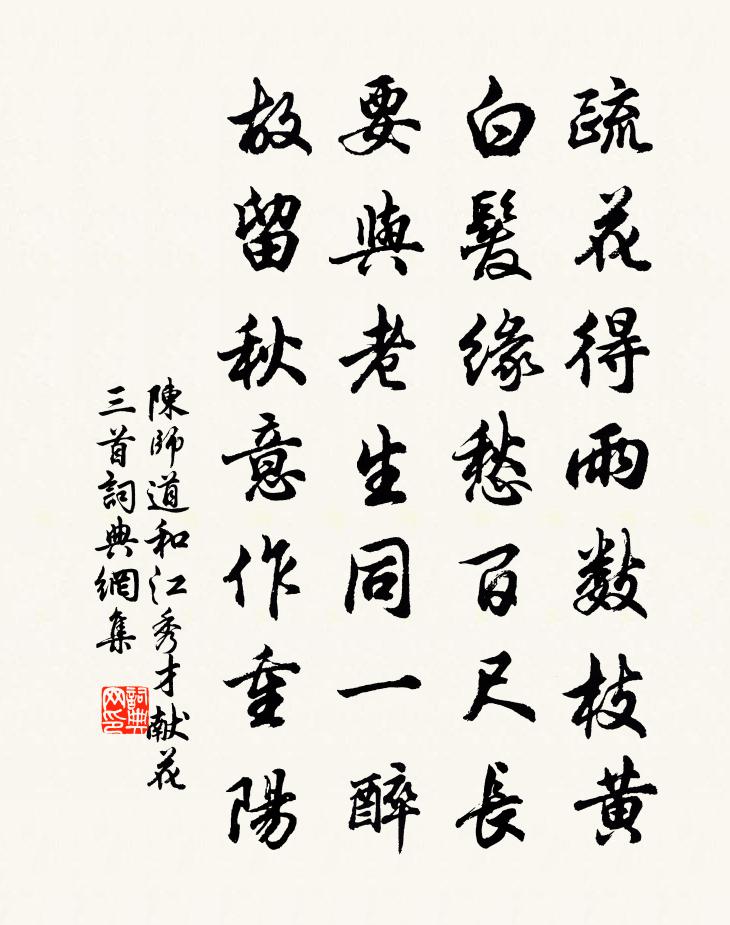 疏花得雨數枝黄
白髮緣愁百尺長
要與老生同一醉
故留秋意作重陽
陳師道和江秀才献花
三首詞典網集
詞典网印